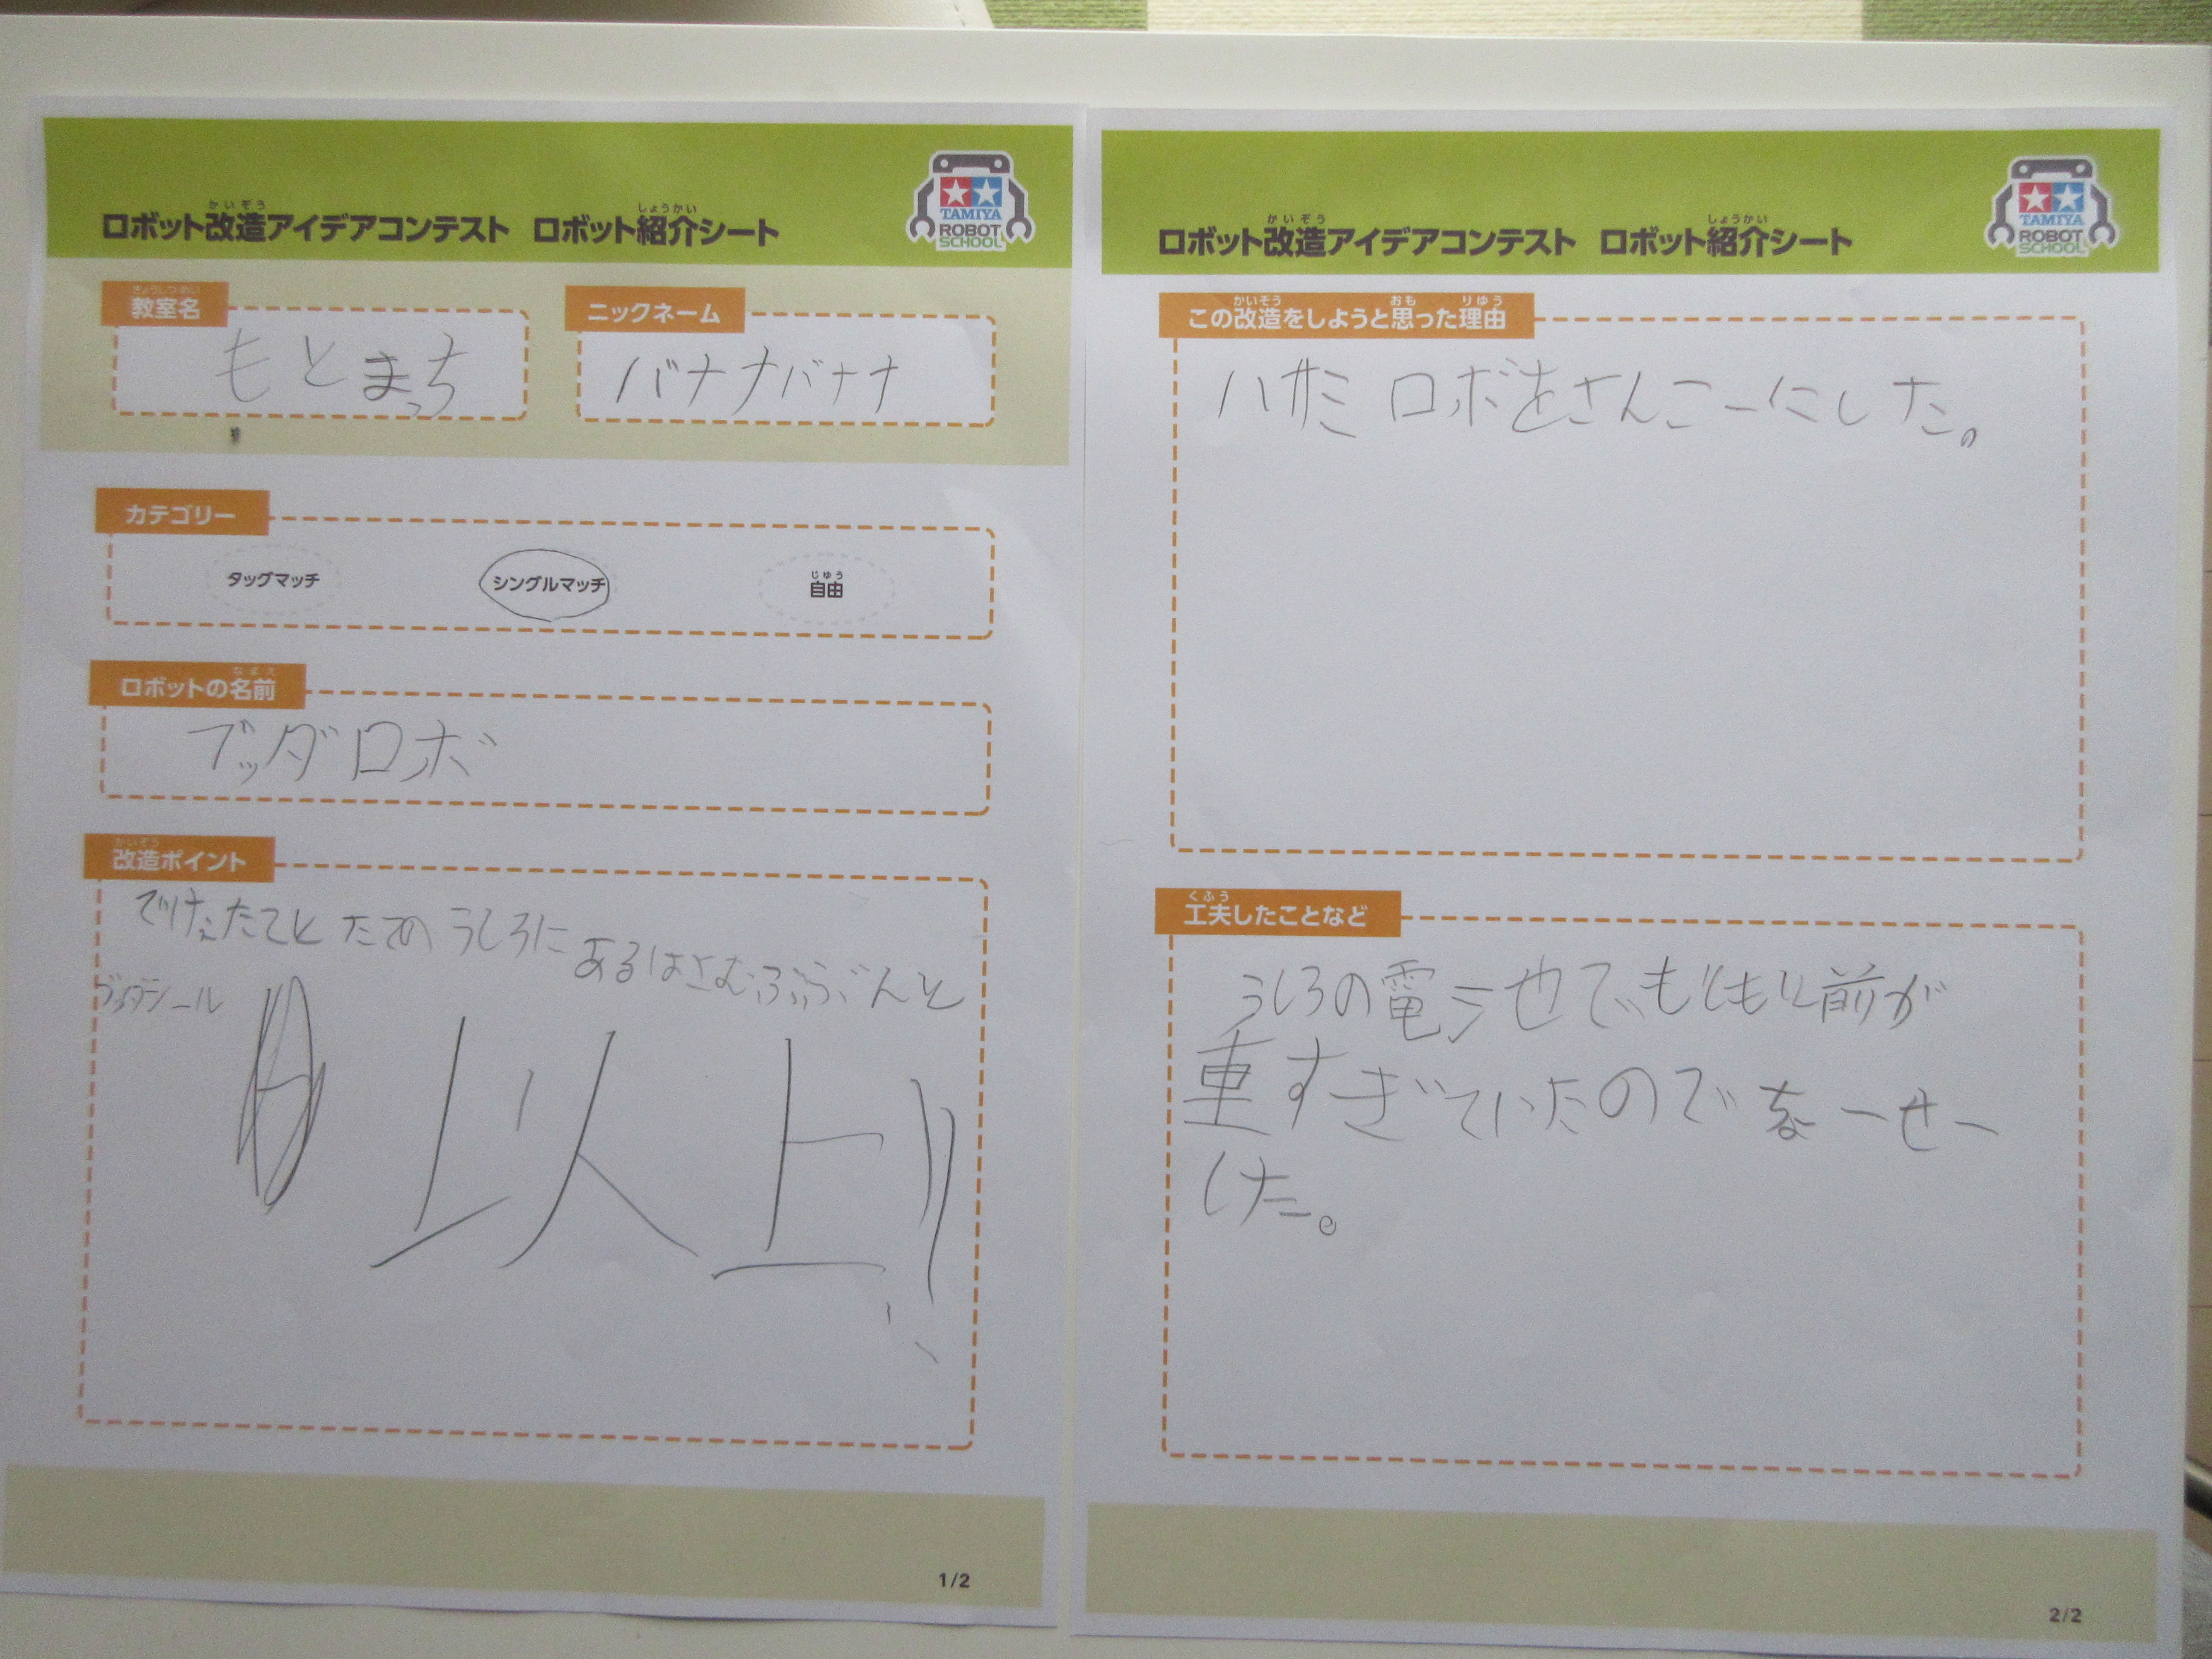 ロボット改造アイデアコンテスト ロボット紹介シート
かいぞう
しょうかい
TAMIYA
ROBOT
SCHOOL
教室名
きょうしつめい
もとまっち
ニックネーム
バナナバナナ
カテゴリー
タッグマッチ
シングルマッチ
自由
じゆう
ロボットの名前
なまえ
ブッダロボ
改造ポイント
かいぞう
たてと たての うしろに あるはさむぶぶんと
ブッダシール
以上!!
1/2
ロボット改造アイデアコンテスト ロボット紹介シート
かいぞう
しょうかい
TAMIYA
ROBOT
SCHOOL
この改造をしようと思った理由
かいぞう
おも
りゆう
ハサミロボをさんこーにした。
工夫したことなど
くふう
うしろの電池でもともと前が
重すぎていたので
した。
2/2